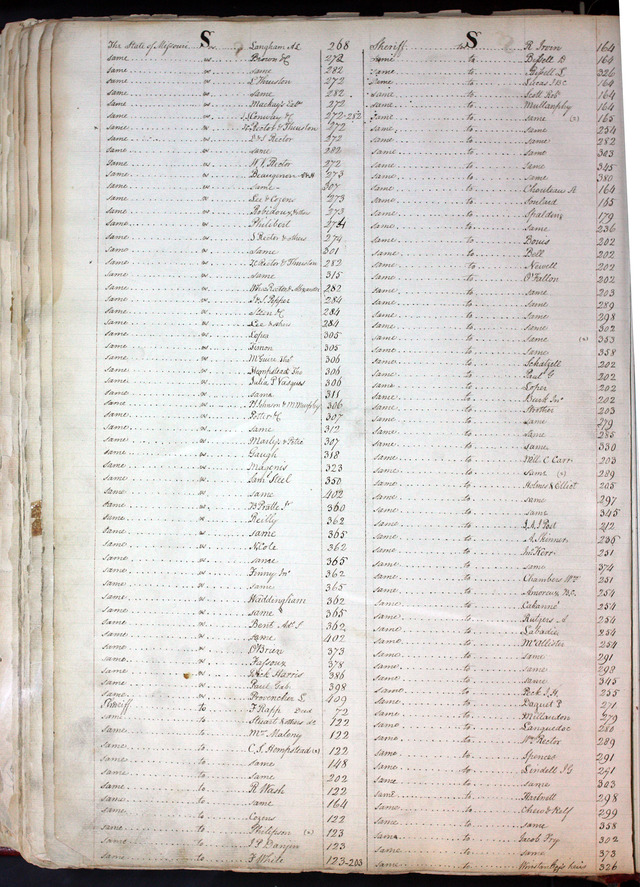 S
The State of Missouri vs Langham A L 268
same vs Brown H 272
same vs same 282
same vs L Thruston 272
same vs same 282
same vs Mackay's Estr 272
same vs Conway J 272-282
same vs Rector & Thruston 272
same vs Rector 272
same vs same 282
same vs W. V. Rector 272
same vs 273
same vs same 307
same vs Lee & Cozens 273
same vs Robidoux 273
same vs Philibert 274
same vs J Rector & others 274
same vs same 301
same vs Rector & Thruston 282
same vs same 315
same vs Wm Rector & Alexander 282
same vs Pepper 284
same vs 284
same vs Lee & others 284
same vs Lopez 305
same vs Simon 305
same vs McGuire Thos 306
same vs Hempstead Thos 306
same vs Julia P Vasques 306
same vs same 311
same vs Johnson & Murphy 306
same vs Potter 307
same vs same 312
same vs Maslys & Petre 307
same vs Gaugh 318
same vs Magenis 323
same vs Saml Steel 350
same vs same 402
same vs B Pratte Sr 360
same vs Reilly 362
same vs same 365
same vs Nicole 362
same vs same 365
same vs Finney Jno 362
same vs same 365
same vs Waddingham 362
same vs same 365
same vs Bent 362
same vs same 402
same vs O'Brien 373
same vs Fassoux 378
same vs Jack Harris 386
same vs Paul Gab. 398
same vs Provencher L 409
Sheriff to F Rapp Deed 72
same to Stuart & others 122
same to Mc Maleny 122
same to C. S. Hempstead (2) 122
same to same 148
same to same 202
same to R Wash 122
same to same 164
same to Cozens 122
same to Philipson (2) 123
same to J P Danjen 123
same to F White 123-203
S
Sheriff to R Irvin 164
same to Bissell D 164
same to Bissell L 326
same to Lucas J B C 164
same to Scott Robt 164
same to Mullanphy 164
same to same (2) 165
same to same 234
same to same 282
same to same 303
same to same 345
same to same 380
same to Chouteau A 164
same to Soulard 165
same to Spalding 179
same to same 236
same to Bouis 202
same to Bell 202
same to Newell 202
same to O'Fallon 202
same to same 203
same to same 289
same to same 298
same to same 302
same to same (2) 353
same to same 358
same to Schatzell 202
same to Paul G 202
same to Lopez 202
same to Burk Jno 202
same to Strother 203
same to same 279
same to same 285
same to same 330
same to Will. C Carr 203
same to same (2) 289
same to Holmes & Elliot 205
same to same 297
same to same 345
same to Post 212
same to A Skinner 235
same to Jno Kerr 251
same to same 374
same to Chambers Wm 251
same to Amoreux 254
same to Cabanne 254
same to Rutgers A 254
same to Labadie 254
same to McAllister 254
same to same 291
same to same 292
same to same 345
same to Peck J. H. 255
same to Daquet P 271
same to Millaudon 279
same to Languedoc 280
same to Wm Rector 289
same to Spencer 291
same to Lindell J G 291
same to same 303
same to Hartnett 298
same to Chew & Relf 299
same to same 358
same to Jacob Fry 302
same to same 373
same to heirs 326